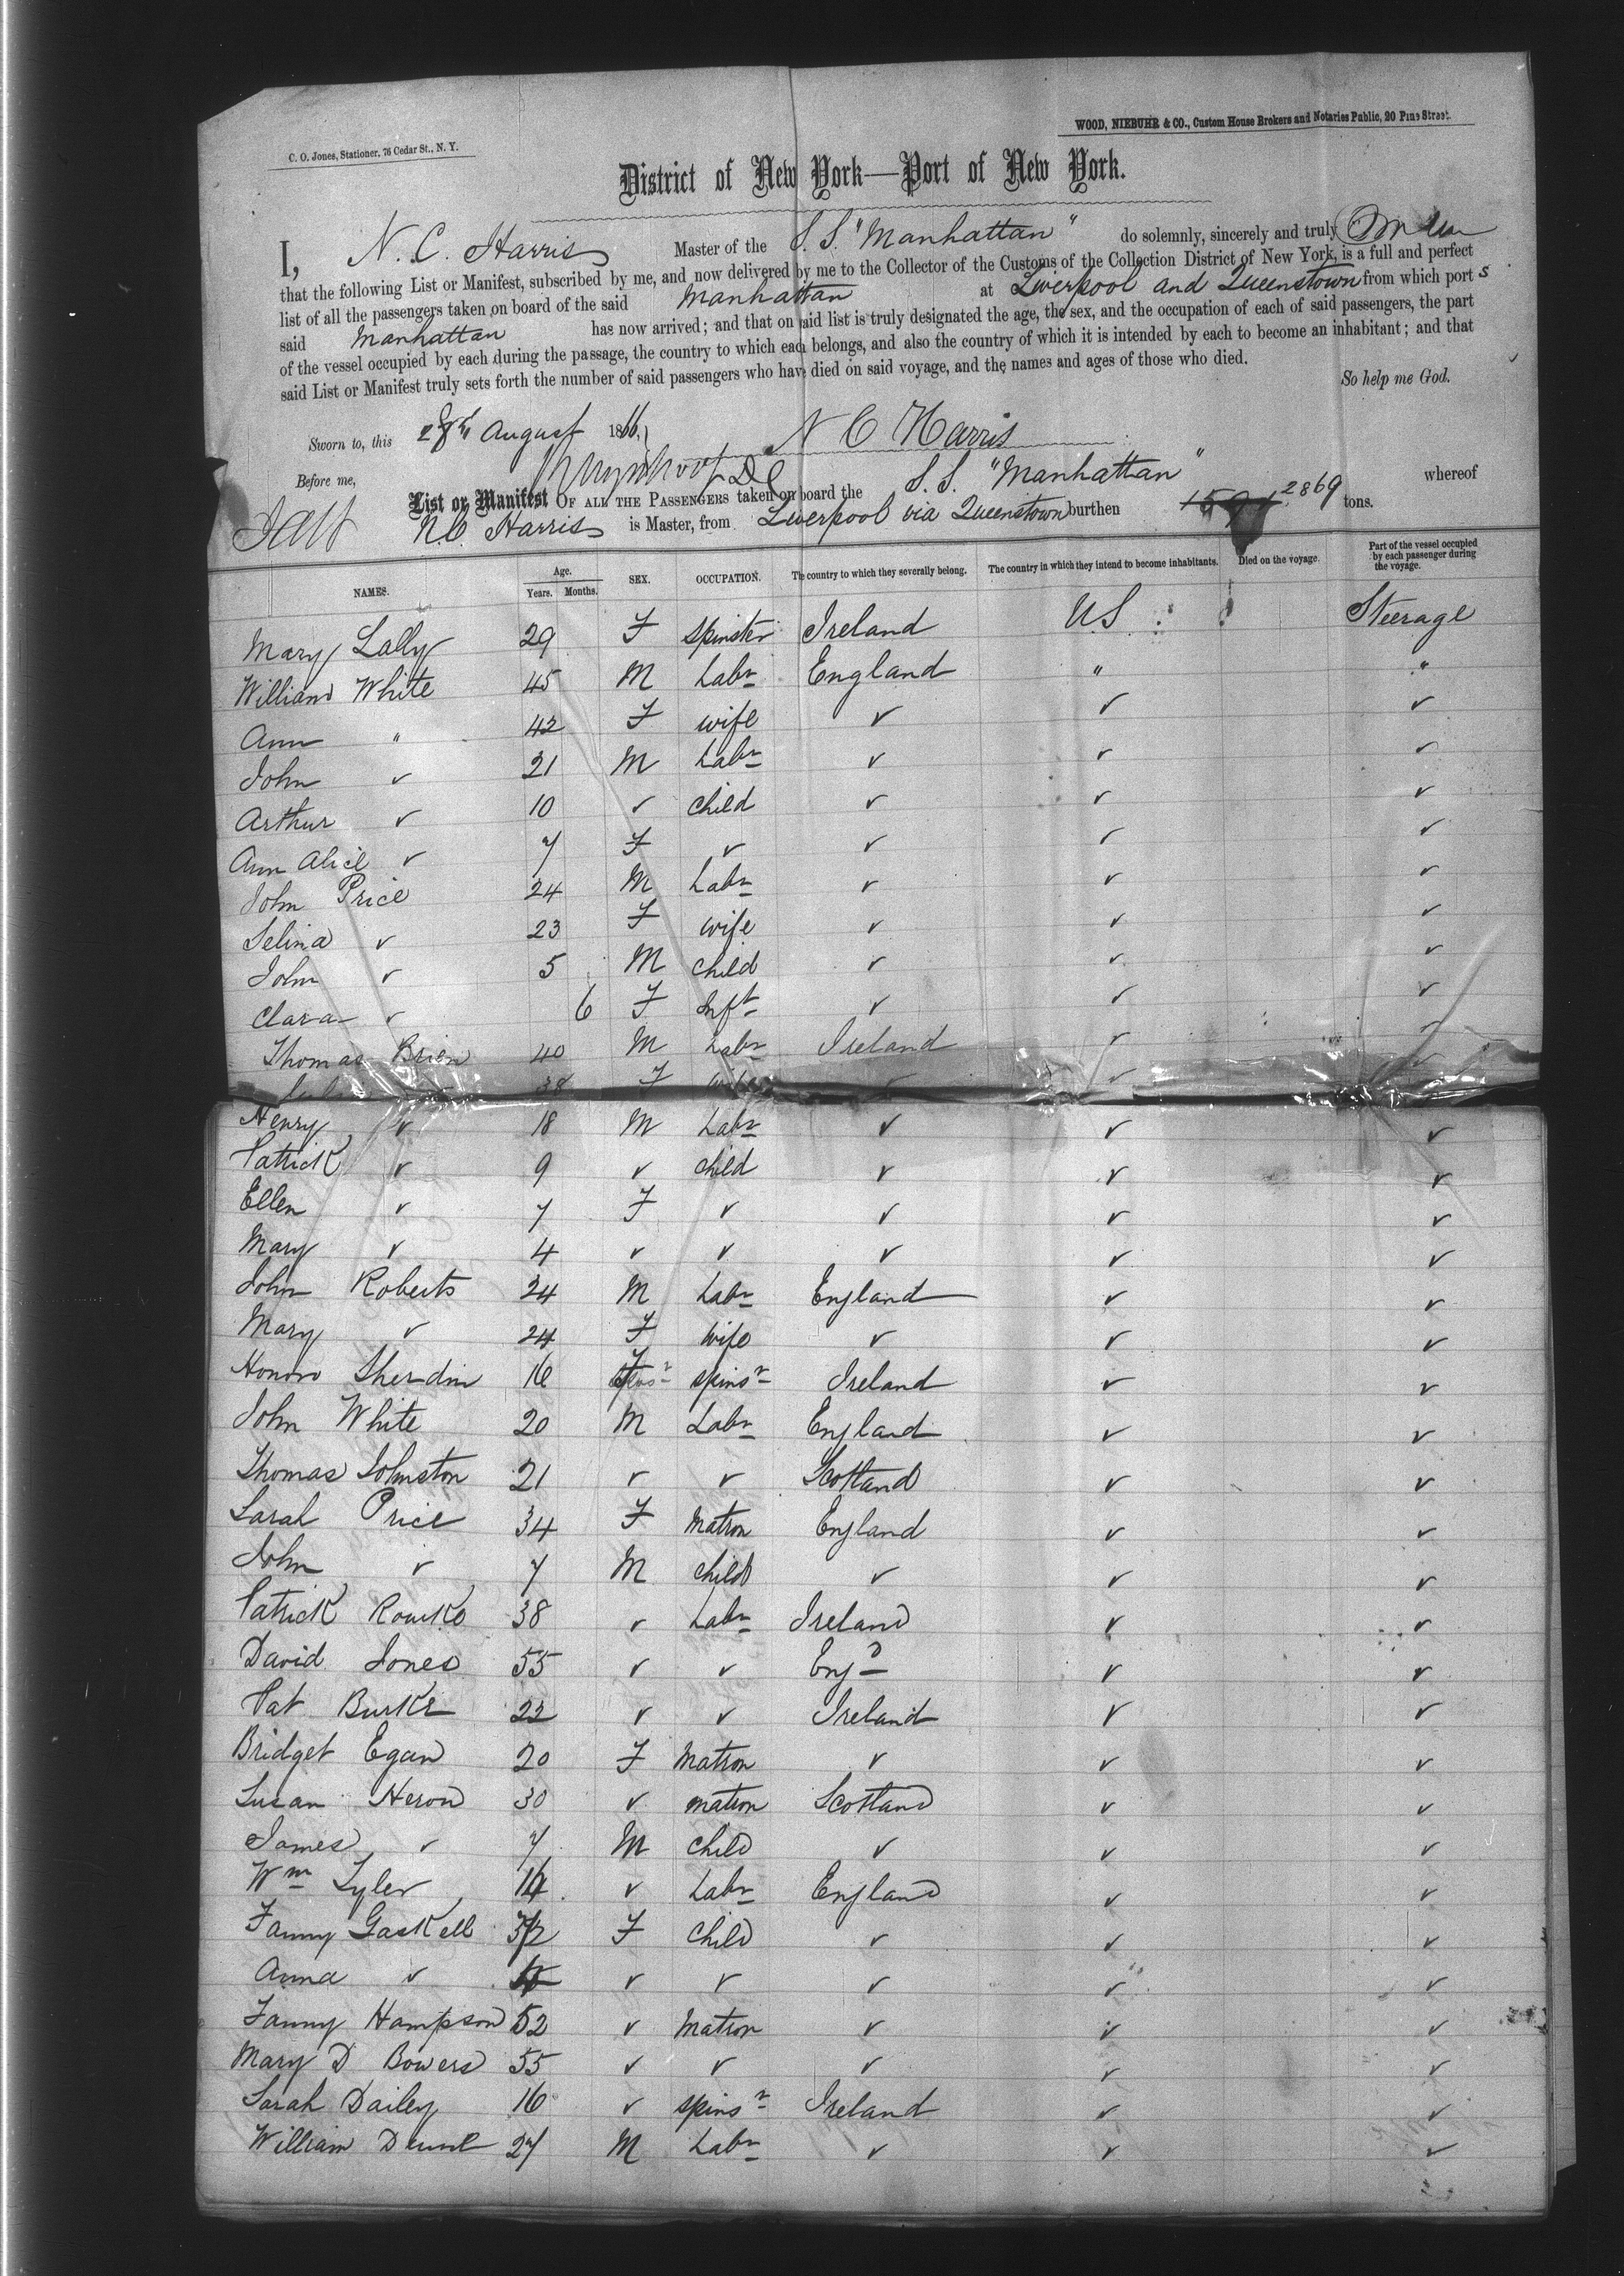 C. O. Jones, Stationer, 76 Cedar St., N. Y.
WOOD, NIEBUHR & CO., Custom House Brokers and Notaries Public, 20 Pine Street.
District of New York—Port of New York.
I, N. C. Harris Master of the S. S. "Manhattan" do solemnly, sincerely and truly
that the following List or Manifest, subscribed by me, and now delivered by me to the Collector of the Customs of the Collection District of New York, is a full and perfect
list of all the passengers taken on board of the said Manhattan at Liverpool and Queenstown from which ports
said Manhattan has now arrived; and that on said list is truly designated the age, the sex, and the occupation of each of said passengers, the part
of the vessel occupied by each during the passage, the country to which each belongs, and also the country of which it is intended by each to become an inhabitant; and that
said List or Manifest truly sets forth the number of said passengers who have died on said voyage, and the names and ages of those who died.
So help me God.
Sworn to, this 28th August 1866, N C Harris
Before me,
List or Manifest OF ALL THE PASSENGERS taken on board the S. S. "Manhattan" whereof
N. C. Harris is Master, from Liverpool via Queenstown burthen 2869 tons.
NAMES. Age. Years. Months. SEX. OCCUPATION. The country to which they severally belong. The country in which they intend to become inhabitants. Died on the voyage. Part of the vessel occupied by each passenger during the voyage.
Mary Lally 29 F Spinster Ireland US Steerage
William White 45 M Labr England " "
Ann " 42 F wife ✓ ✓ ✓
John ✓ 21 M Labr ✓ ✓ ✓
Arthur ✓ 10 ✓ child ✓ ✓ ✓
Ann Alice ✓ 7 F ✓ ✓ ✓ ✓
John Price 24 M Labr ✓ ✓ ✓
Selina ✓ 23 F wife ✓ ✓ ✓
John ✓ 5 M child ✓ ✓ ✓
Clara ✓ 6 F Inft ✓ ✓ ✓
Thomas Brien 40 M Labr Ireland ✓ ✓
38 F wife ✓ ✓ ✓
Henry ✓ 18 M Labr ✓ ✓ ✓
Patrick ✓ 9 ✓ child ✓ ✓ ✓
Ellen ✓ 7 F ✓ ✓ ✓ ✓
Mary ✓ 4 ✓ ✓ ✓ ✓ ✓
John Roberts 24 M Labr England ✓ ✓
Mary ✓ 24 F wife ✓ ✓ ✓
Honora Sherdin 16 F spinsr Ireland ✓ ✓
John White 20 M Labr England ✓ ✓
Thomas Johnston 21 ✓ ✓ Scotland ✓ ✓
Sarah Price 34 F Matron England ✓ ✓
John ✓ 7 M child ✓ ✓ ✓
Patrick Rourke 38 ✓ Labr Ireland ✓ ✓
David Jones 55 ✓ ✓ Engd ✓ ✓
Pat Burke 22 ✓ ✓ Ireland ✓ ✓
Bridget Egan 20 F Matron ✓ ✓ ✓
Susan Heron 30 ✓ matron Scotland ✓ ✓
James ✓ 7 M child ✓ ✓ ✓
Wm Tyler 14 ✓ Labr England ✓ ✓
Fanny Gaskell F child ✓ ✓ ✓
Anna ✓ ✓ ✓ ✓ ✓ ✓
Fanny Hampson 52 ✓ Matron ✓ ✓ ✓
Mary D Bowers 55 ✓ ✓ ✓ ✓ ✓
Sarah Dailey 16 ✓ spinsr Ireland ✓ ✓
William 27 M Labr ✓ ✓ ✓